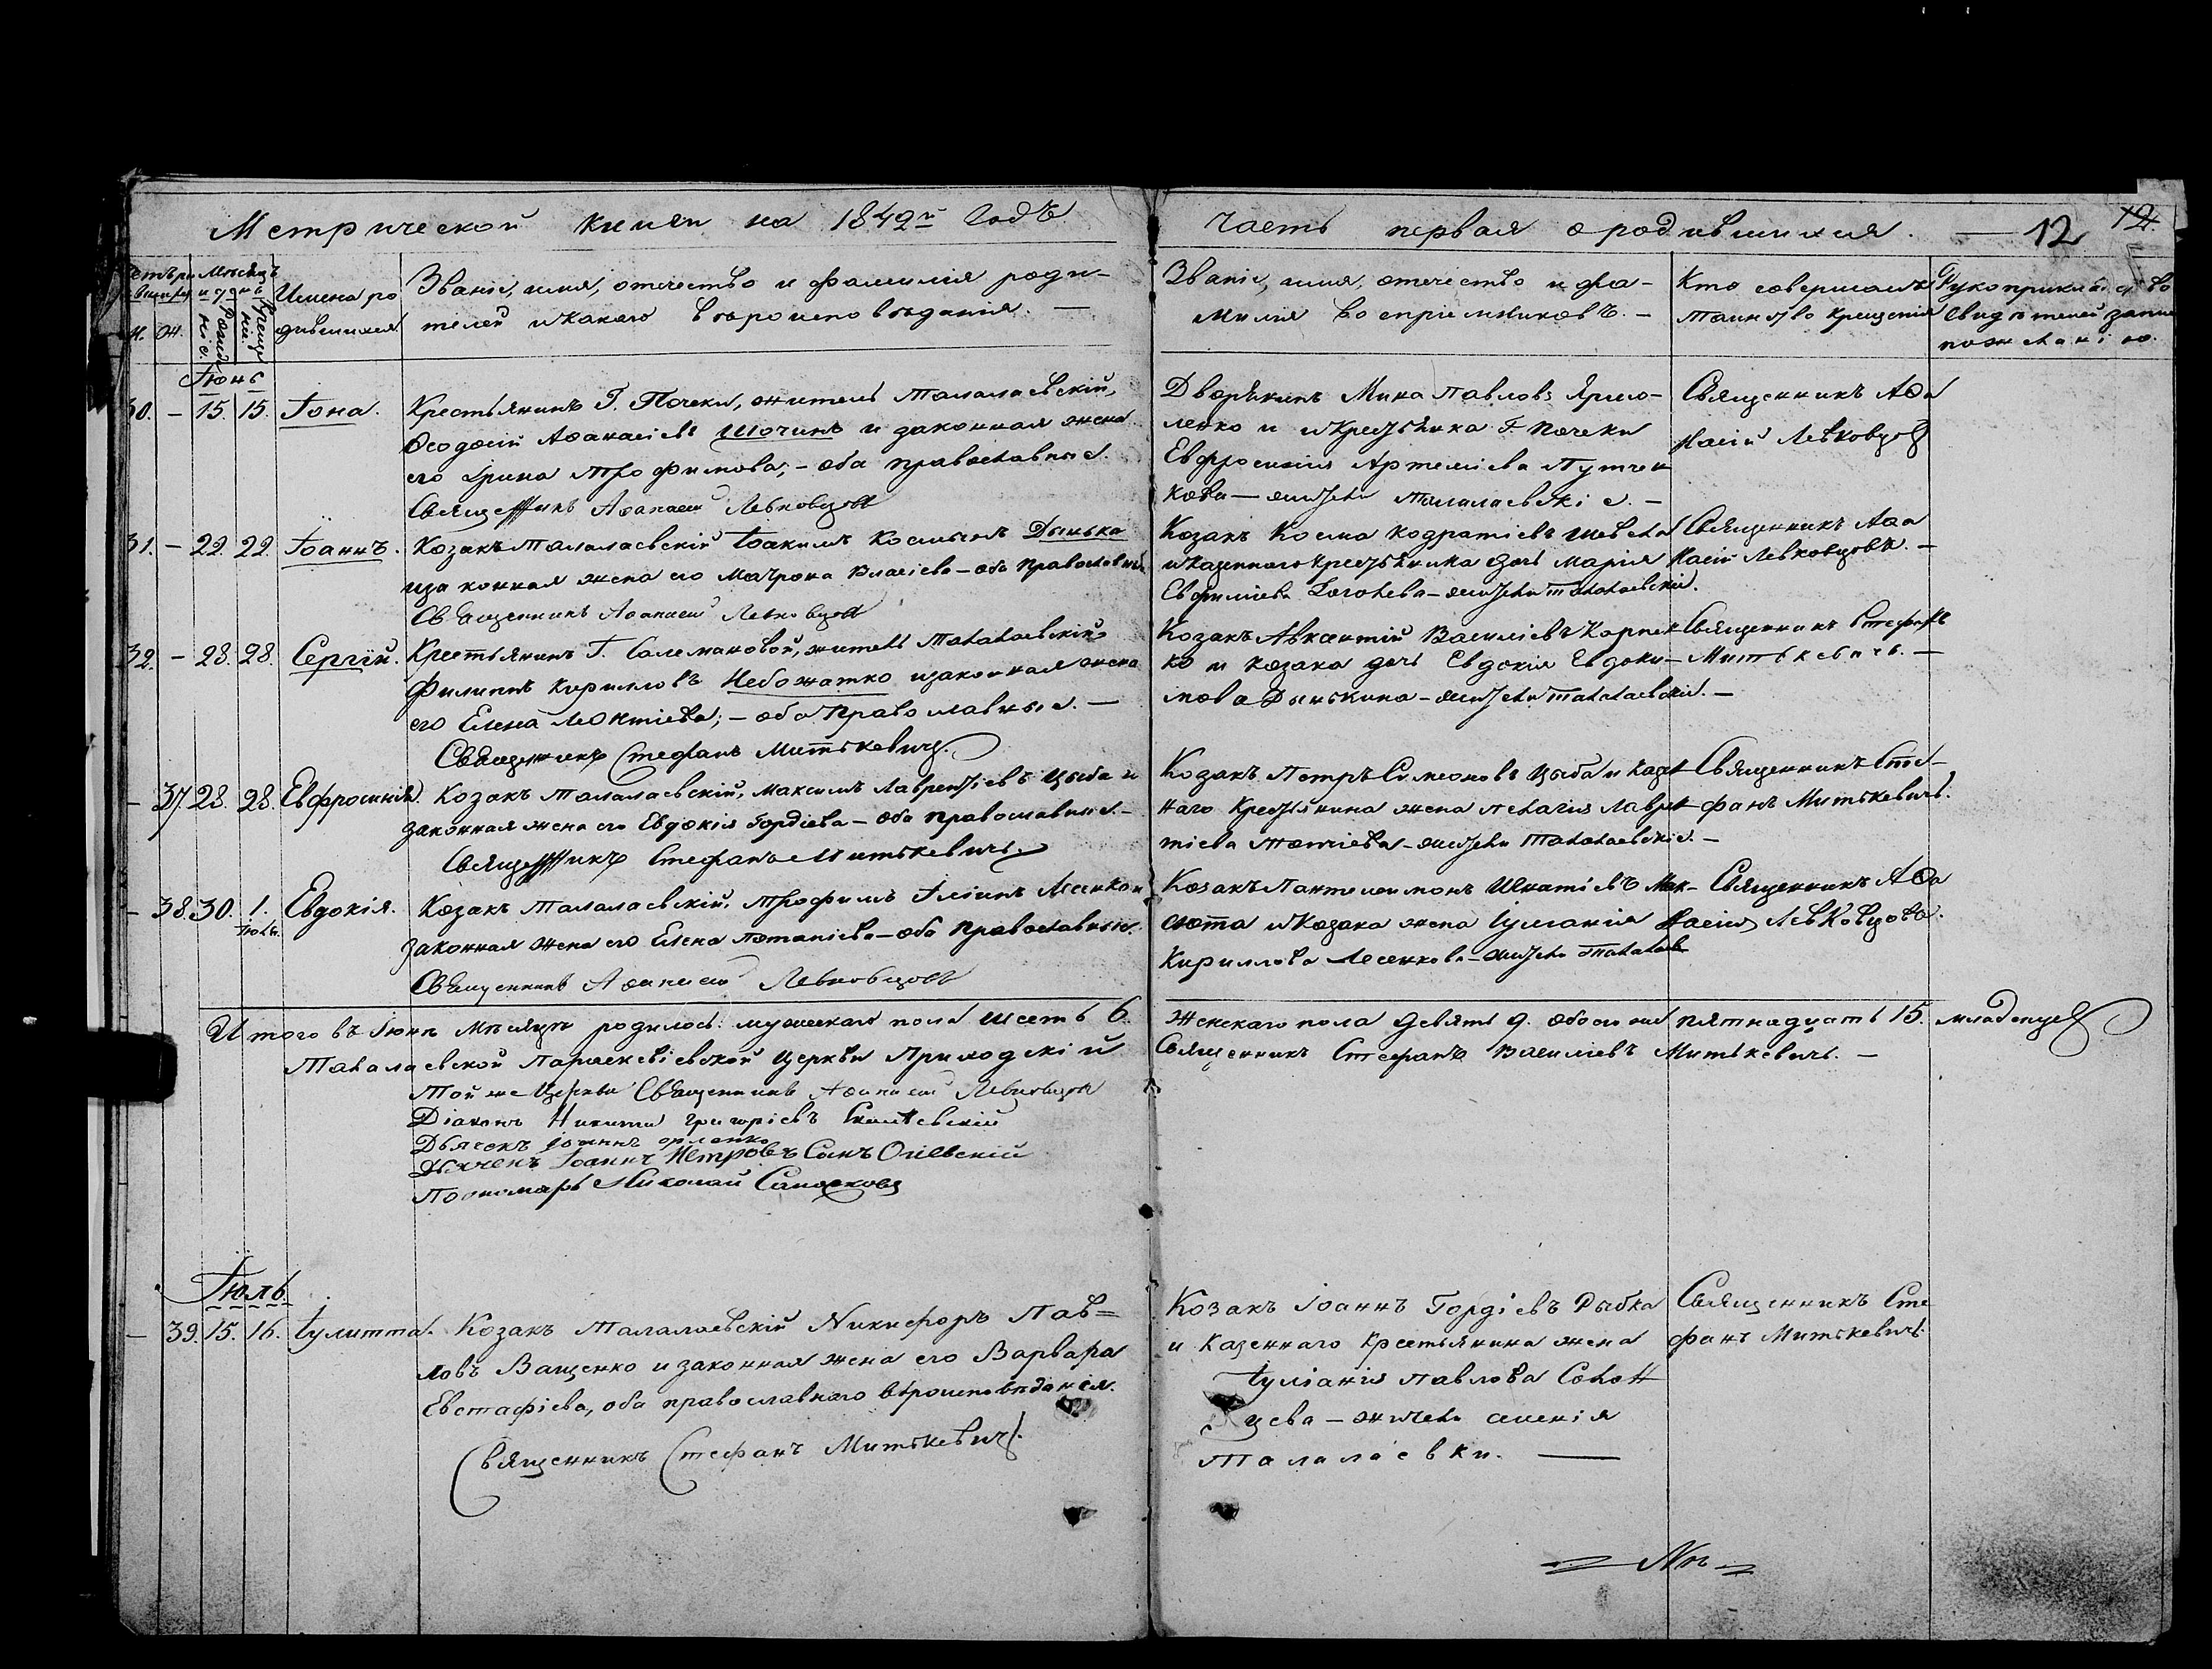 Метрической книги на 1842й Годъ
Часть первая о родившихся. — 12
Имена ро
дившихся
Званіе, имя, отечество и фамилія роди-
телей и какого вѣроисповѣданія. —
Званіе, имя, отечество и фа-
милія воспріемниковъ. —
Кто совершалъ
таинство крещенія
Рукоприкладство
свидѣтелей
по желанію.
Іюнь
30. – 15. 15. Іона.
Крестьянинъ Г. Почеки, житель Талалаевскій,
Ѳеодосій Аѳанасіевъ Шочинъ и законная жена
его Ирина Трофимова; – оба православные.
Священникъ Аѳанасій Левковцовъ
Дворянинъ Мина Павловъ Ярмо-
ленко и крестьянка Г. Почеки
Евфросинія Артеміева
кова — жители Талалаевскіе. –
Священникъ Аѳа
насій Левковцовъ
31. – 22. 22. Іоаннъ.
Козакъ Талалаевскій Іоакимъ Косминъ Дынька
и законная жена его Матрона Власіева – оба Православные
Священникъ Аѳанасій Левковцовъ
Козакъ Косма Кодратіевъ
и казеннаго крестьянина дочь Марія
Евфиміева – жители Талалаевскіе.
Священникъ Аѳа
насій Левковцовъ. –
32. – 28. 28. Сергій.
Крестьянинъ Г. Солемановой, житель Талалаевскій
Филиппъ Кирилловъ Небожатко и законная жена
его Елена Леонтіева; – оба Православные. —
Священникъ Стефанъ Митькевичъ.
Козакъ Авксентій Василіевъ Карпен
ко и козака дочь Евдокія Евдоки-
мова Дынькина – жители Талалаевскіе. –
Священникъ Стефанъ
Митькевичъ. —
– 37. 28. 28. Евфросинія.
Козакъ Талалаевскій, Максимъ Лаврентіевъ Цыба и
законная жена его Евдокія Гордіева – оба православные. –
Священникъ Стефанъ Митькевичъ.
Козакъ Петръ Симеоновъ Цыба и казен
наго крестьянина жена Пелагія Лаврен
тіева – жители Талалаевскіе. –
Священникъ Сте-
фанъ Митькевичъ.
– 38. 30. 1. Евдокія.
Іюля.
Козакъ Талалаевскій, Трофимъ Іліинъ Лесенко и
законная жена его Елена Потапіева – оба Православные.
Священникъ Аѳанасій Левковцовъ
Козакъ Пантелеимонъ Игнатіевъ
и козака жена Іуліанія
Кириллова Лесенкова – жители Талалаев
Священникъ Аѳа
насій Левковцовъ.
Итого въ Іюнѣ мѣсяцѣ родилось: мужескаго пола шесть 6.
женскаго пола девять 9. обоего же пятнадцать 15. младенцевъ
Талалаевской Параскевіевской Церкви Приходскій
Священникъ Стефанъ Василіевъ Митькевичъ. –
Той же Церкви Священникъ Аѳанасій Левковцовъ
Діаконъ Никита Григоріевъ
Дьячекъ Іоаннъ Орленко
Дьячекъ Іоаннъ Петровъ
Пономарь Николай
Іюль.
– 39. 15. 16. Іулитта.
Козакъ Талалаевскій Никифоръ Пав=
ловъ Ващенко и законная жена его Варвара
Евстафіева, оба православнаго вѣроисповѣданія.
Священникъ Стефанъ Митькевичъ.
Козакъ Іоаннъ Гордіевъ Рыбка
и казеннаго крестьянина жена
Іуліанія Павлова Солон
цева – жители селенія
Талалаевки. —
Священникъ Сте
фанъ Митькевичъ.